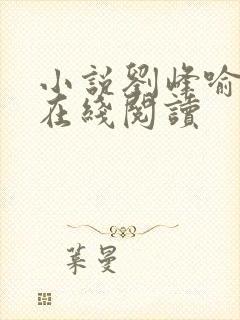 小說劉峰喻
在綫閱讀
葉曼